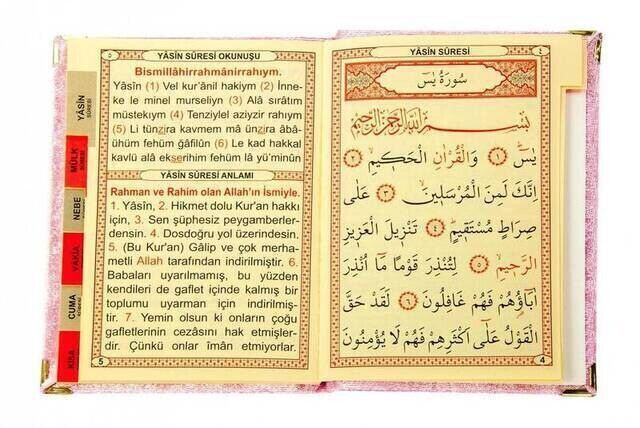 ٥
YÂSİN SÛRESİ OKUNUŞU
Bismillâhirrahmânirrahıym.
Yâsîn (1) Vel kur'ânil hakiym (2) İnne-
ke le minel murseliyn (3) Alâ sırâtım
müstekıym (4) Tenziylel aziyzir rahıym
(5) Li tünzira kavmem mâ ünzira âbâ-
ühüm fehüm ğâfilûn (6) Le kad hakkal
kavlü alâ ekserihim fehüm lâ yü'minûn
YÂSİN SÛRESİ ANLAMI
Rahman ve Rahim olan Allah'ın İsmiyle.
1. Yâsîn, 2. Hikmet dolu Kur'an hakkı
için, 3. Sen şüphesiz peygamberler-
densin. 4. Dosdoğru yol üzerindesin.
5. (Bu Kur'an) Gâlip ve çok merha-
metli Allah tarafından indirilmiştir. 6.
Babaları uyarılmamış, bu yüzden
kendileri de gaflet içinde kalmış bir
toplumu uyarman için indirilmiş-
tir. 7. Yemin olsun ki onların çoğu
gafletlerinin cezasını hak etmişler-
dir. Çünkü onlar îmân etmiyorlar.
5
YÂSİN SÛRESİ
MÜLK SÛRESİ
NEBE
VAKIA
CUMA
KISA
YÂSİN SÛRESİ
٤
سُورَةُ يٰسٓ
بِسْمِ اللّٰهِ الرَّحْمٰنِ الرَّحِيمِ
يٰسٓ ﴿١﴾ وَالْقُرْاٰنِ الْحَكِيمِ ﴿٢﴾
اِنَّكَ لَمِنَ الْمُرْسَلِينَ ﴿٣﴾ عَلٰى
صِرَاطٍ مُسْتَقِيمٍ ﴿٤﴾ تَنْزِيلَ الْعَزِيزِ
الرَّحِيمِ ﴿٥﴾ لِتُنْذِرَ قَوْمًا مَٓا اُنْذِرَ
اٰبَٓاؤُهُمْ فَهُمْ غَافِلُونَ ﴿٦﴾ لَقَدْ حَقَّ
الْقَوْلُ عَلٰٓى اَكْثَرِهِمْ فَهُمْ لَا يُؤْمِنُونَ
4